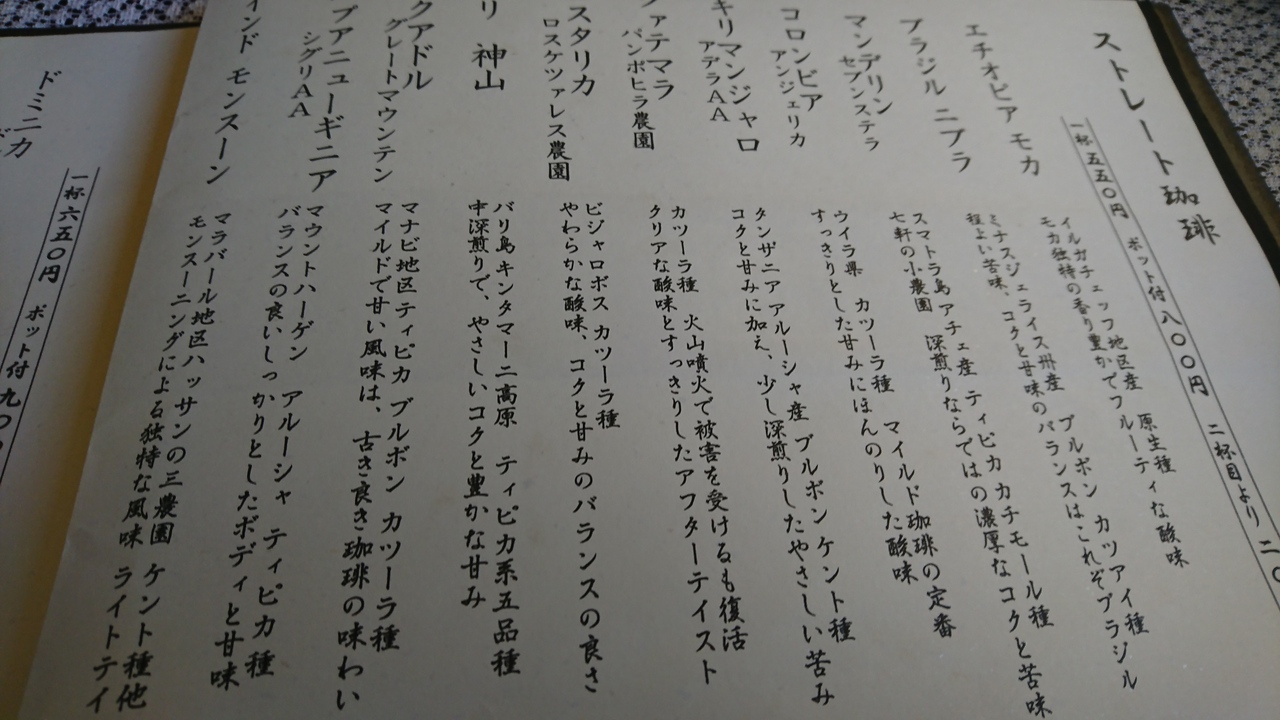 ストレート珈琲
一杯五五〇円 ポット付八〇〇円 二杯目より二〇
エチオピア モカ
イルガチェッフ地区産 原生種
モカ独特の香り豊かでフルーティな酸味
ブラジル ニブラ
ミナスジェライス州産 ブルボン カツアイ種
程よい苦味、コクと甘味のバランスはこれぞブラジル
マンデリン
セブンステラ
スマトラ島アチェ産 ティピカ カチモール種
七軒の小農園 深煎りならではの濃厚なコクと苦味
コロンビア
アンジェリカ
ウイラ県 カツーラ種 マイルド珈琲の定番
すっきりとした甘みにほんのりした酸味
キリマンジャロ
アデラAA
タンザニアアルーシャ産 ブルボンケント種
コクと甘みに加え、少し深煎りしたやさしい苦み
ァテマラ
パンポヒラ農園
カツーラ種 火山噴火で被害を受けるも復活
クリアな酸味とすっきりしたアフターテイスト
スタリカ
ロスケツァレス農園
ビジャロボス カツーラ種
やわらかな酸味、コクと甘みのバランスの良さ
リ 神山
バリ島キンタマーニ高原 ティピカ系五品種
中深煎りで、やさしいコクと豊かな甘み
クアドル
グレートマウンテン
マナビ地区ティピカ ブルボン カツーラ種
マイルドで甘い風味は、古き良き珈琲の味わい
プアニューギニア
シグリAA
マウントハーゲン アルーシャ ティピカ種
バランスの良いしっかりとしたボディと甘味
ィンド モンスーン
マラバール地区ハッサンの三農園 ケント種他
モンスーニングによる独特な風味 ライトテイ
ドミニカ
一杯六五〇円 ポット付九〇